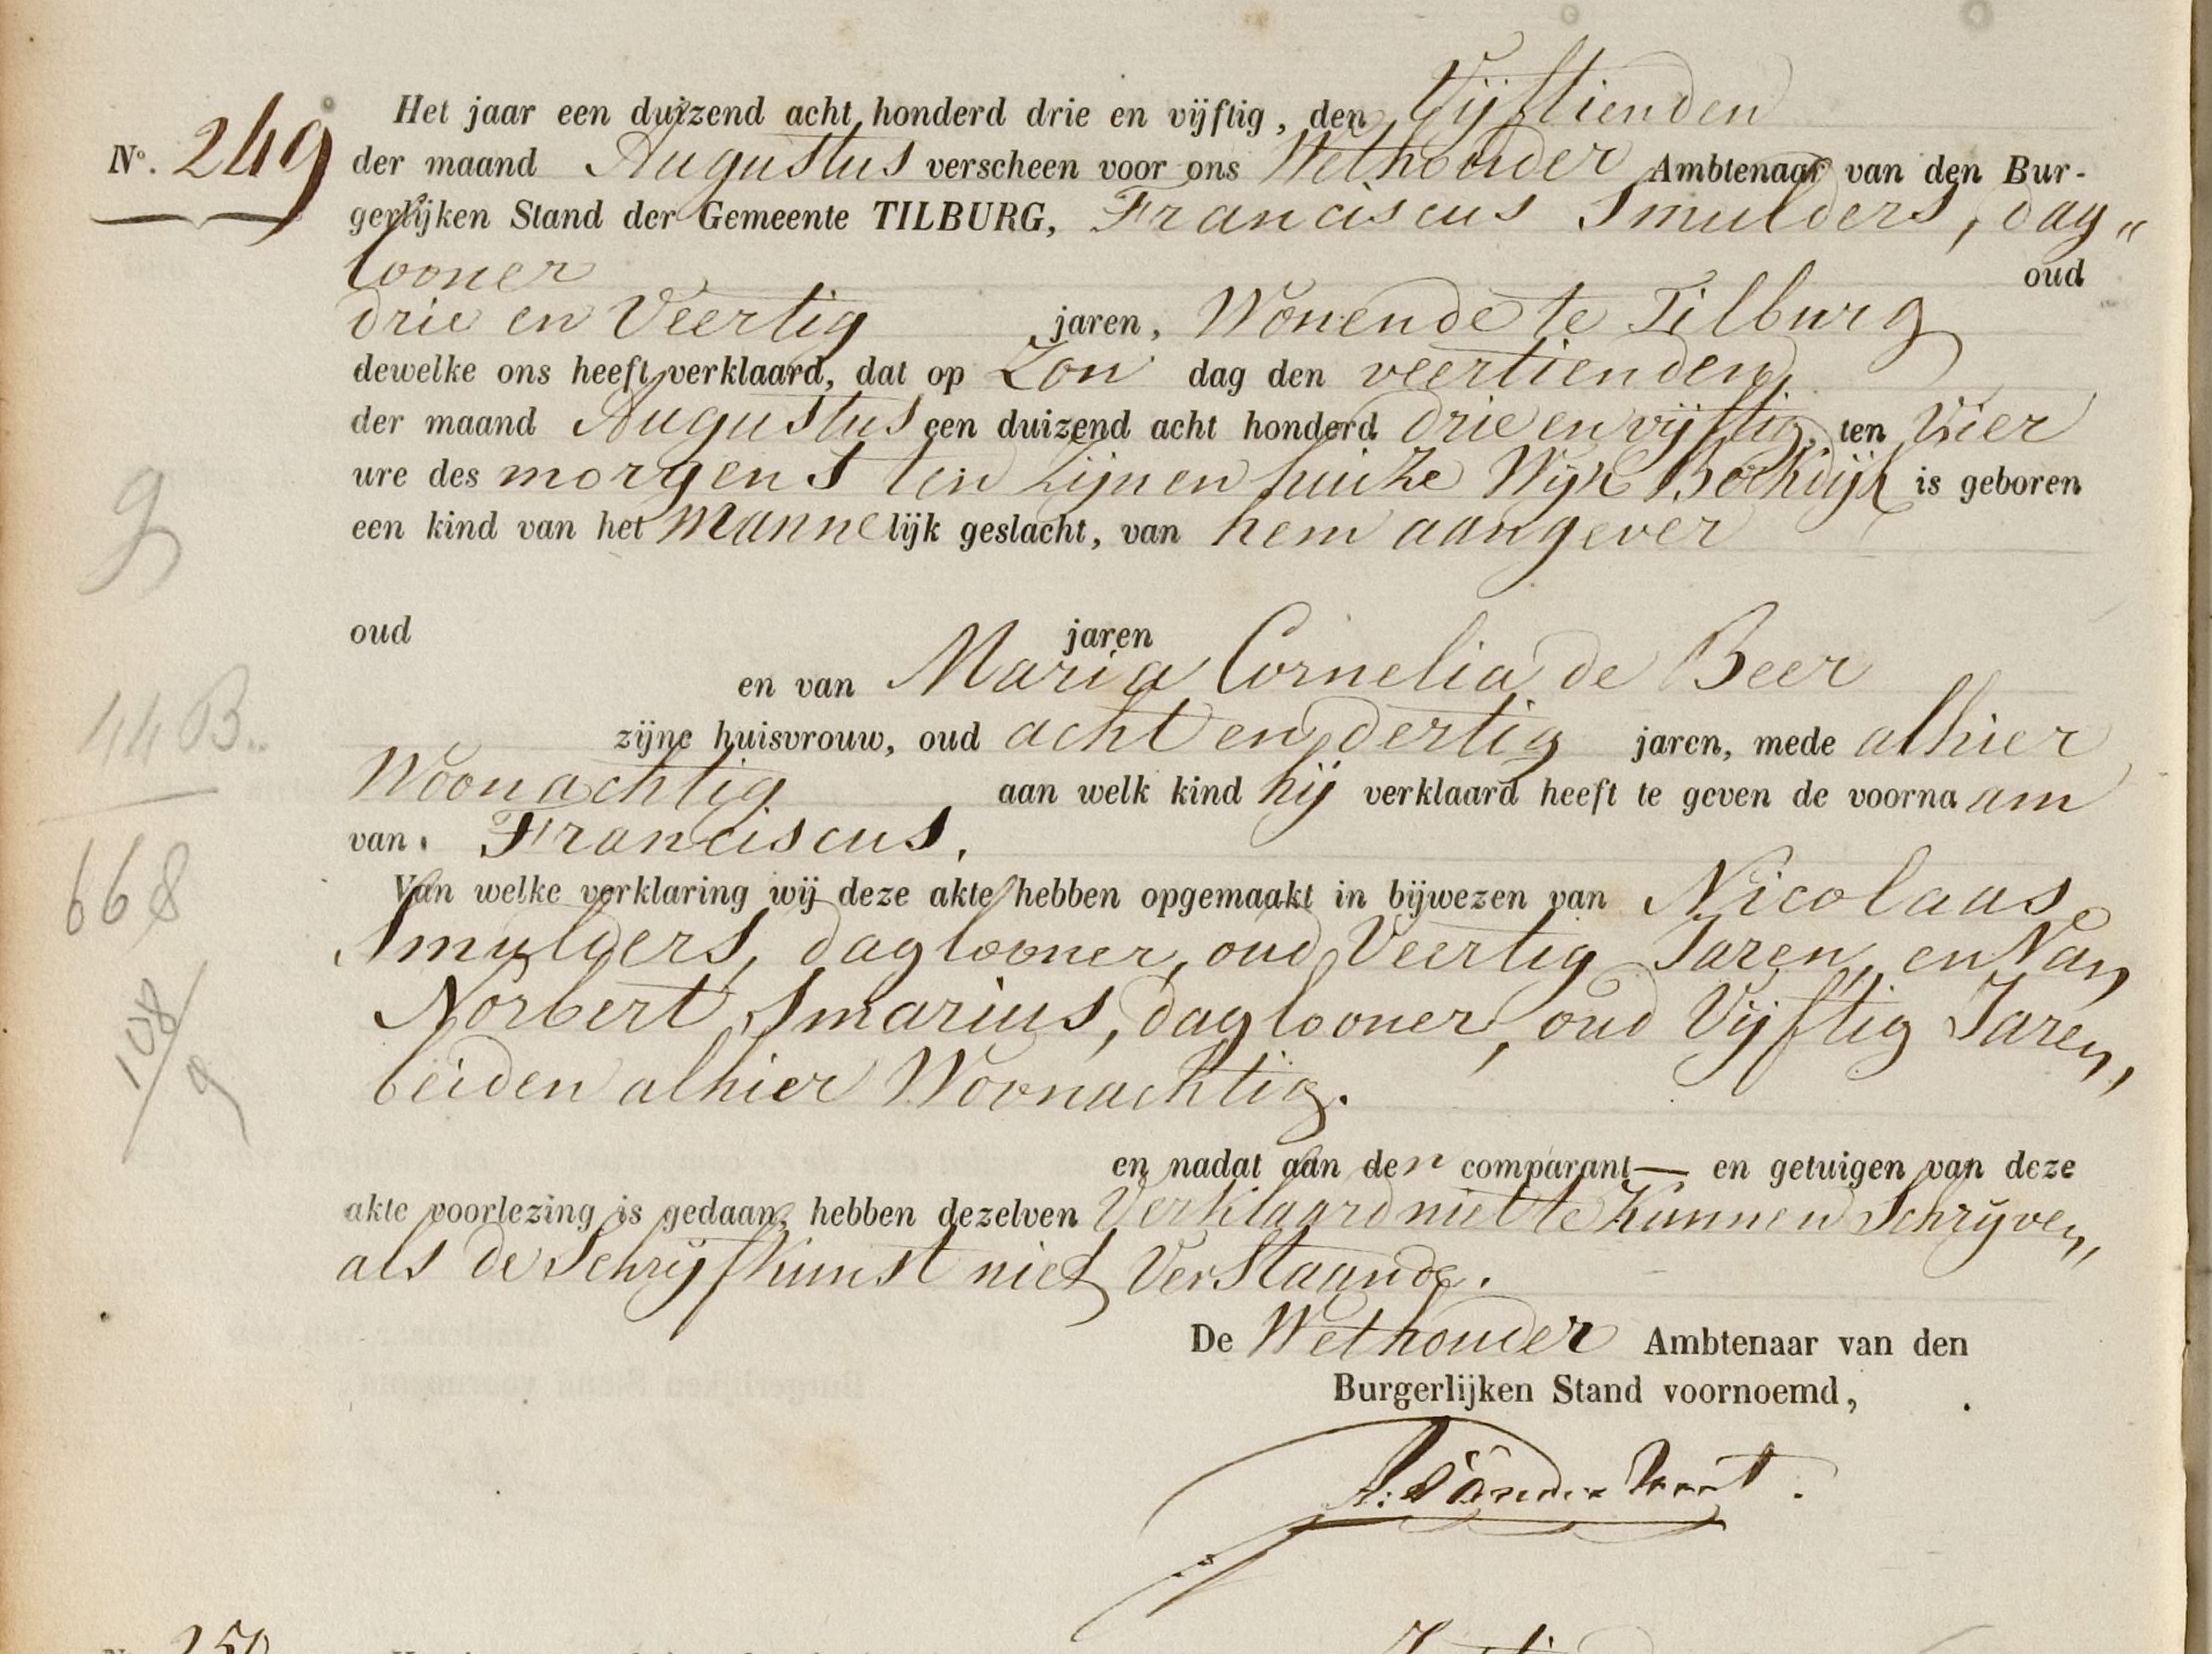 Het jaar een duizend acht honderd drie en vijftig, den Vijftienden
No. 249 der maand Augustus verscheen voor ons Wethouder Ambtenaar van den Bur-
gerlijken Stand der Gemeente TILBURG, Franciscus Smulders, dag„
looner oud
drie en Veertig jaren, Wonende te Tilburg
dewelke ons heeft verklaard, dat op Zon dag den veertienden
der maand Augustus een duizend acht honderd drie en vijftig, ten Vier
ure des morgens ten zijnen huize Wijk is geboren
een kind van het Mannelijk geslacht, van hem aangever
g
oud jaren
en van Maria Cornelia de Beer
44 B..
zijne huisvrouw, oud acht en dertig jaren, mede alhier
Woonachtig aan welk kind hij verklaard heeft te geven de voornaam
van Franciscus.
668
Van welke verklaring wij deze akte hebben opgemaakt in bijwezen van Nicolaas
Smulders, daglooner, oud Veertig Jaren, en Van
Norbert Smarius, daglooner, oud Vijftig Jaren,
108/9
beiden alhier Woonachtig.
en nadat aan den comparant— en getuigen van deze
akte voorlezing is gedaan, hebben dezelven Verklaard niet te Kunnen Schrijven,
als de Schrijfkunst niet Verstaande.
De Wethouder Ambtenaar van den
Burgerlijken Stand voornoemd,
250